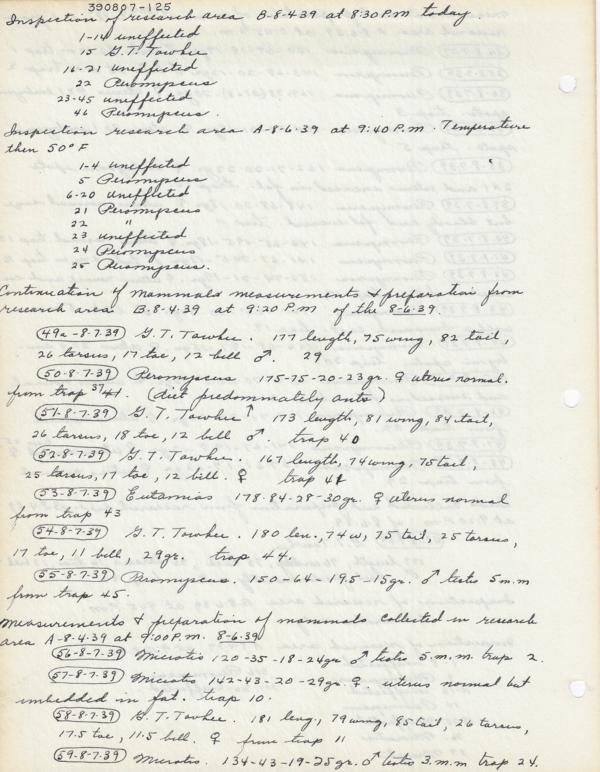 390807-125
Inspection of research area B-8-4-39 at 8:30 P.M today.
1-14 uneffected
15 G.T. Towhee
16-21 uneffected
22 Peromyscus
23-45 uneffected
46 Peromyscus.
Inspection research area A-8-6-39 at 9:40 P.m. Temperature
then 50° F
1-4 uneffected
5 Peromyscus
6-20 uneffected
21 Peromyscus
22 "
23 uneffected
24 Peromyscus
25 Peromyscus.
Continuation of mammals measurements & preparation from
research area B-8-4-39 at 9:20 P.M of the 8-6-39.
49a-8-7-39 G.T. Towhee. 177 length, 75 wing, 82 tail,
26 tarsus, 17 toe, 12 bill ♂. 29
50-8-7-39 Peromyscus 175-75-20-23gr. ♀ uterus normal.
from trap 37 (diet predominately ants)
51-8-7-39 G.T. Towhee 173 length, 81 wing, 84 tail,
26 tarsus, 18 toe, 12 bill ♂. trap 40
52-8-7-39 G.T. Towhee. 167 length, 74 wing, 75 tail,
25 tarsus, 17 toe, 12 bill. ♀ trap 41
53-8-7-39 Eutamias 178-84-28-30gr. ♀ uterus normal
from trap 43
54-8-7-39 G.T. Towhee. 180 len., 74 w, 75 tail, 25 tarsus,
17 toe, 11 bill, 29gr. trap 44.
55-8-7-39 Peromyscus. 150-64-19.5-15gr. ♂ testis 5 m.m
from trap 45.
Measurements & preparation of mammals collected in research
area A-8-4-39 at 9:00 P.m. 8-6-39
56-8-7-39 Microtis 120-35-18-24gr ♂ testis 5.m.m. trap 2.
57-8-7-39 Microtis 142-43-20-29gr. ♀. uterus normal but
imbedded in fat. trap 10.
58-8-7-39 G.T. Towhee. 181 leng, 79 wing, 85 tail, 26 tarsus,
17.5 toe, 11.5 bill. ♀ from trap 11
59-8-7-39 Microtis. 134-43-19-25gr. ♂ testis 3.m.m trap 24.